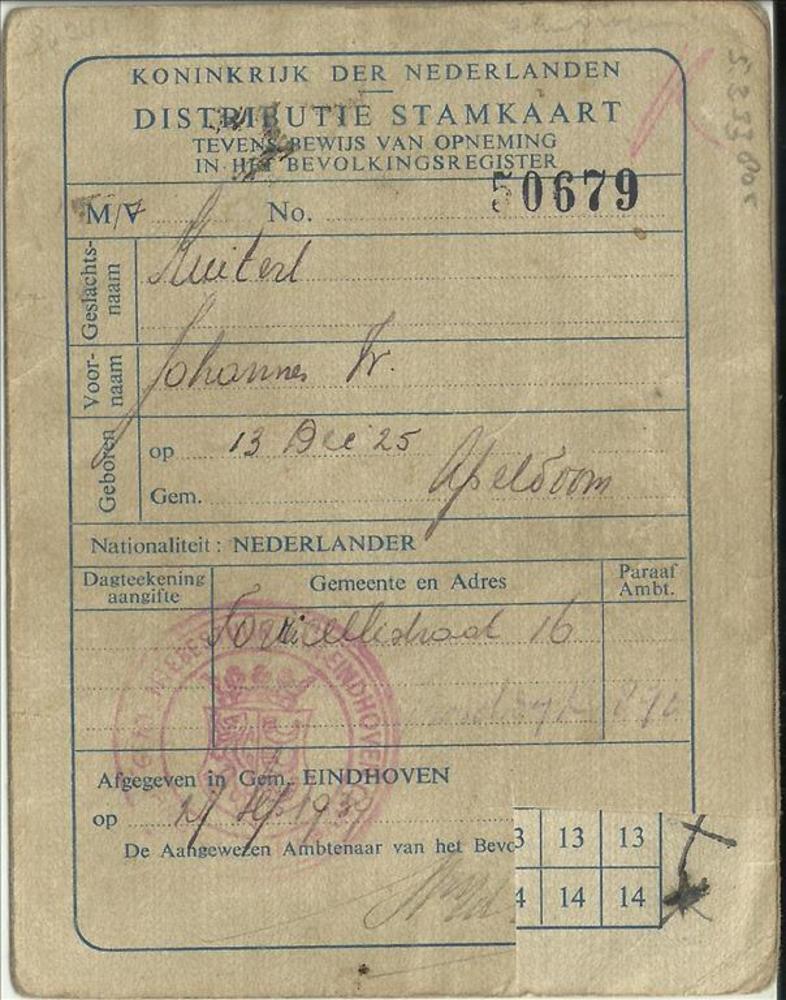 KONINKRIJK DER NEDERLANDEN
DISTRIBUTIE STAMKAART
TEVENS BEWIJS VAN OPNEMING
IN HET BEVOLKINGSREGISTER
M/V No. 50679
Geslachts-
naam
Voor-
naam
Johannes W.
Geboren
op 13 Dec '25
Gem. Apeldoorn
Nationaliteit: NEDERLANDER
Dagteekening
aangifte
Gemeente en Adres
Paraaf
Ambt.
Torricellistraat 16
EINDHOVEN
Afgegeven in Gem. EINDHOVEN
op Sep 1939
De Aangewezen Ambtenaar van het Bevo
3 13 13
4 14 14